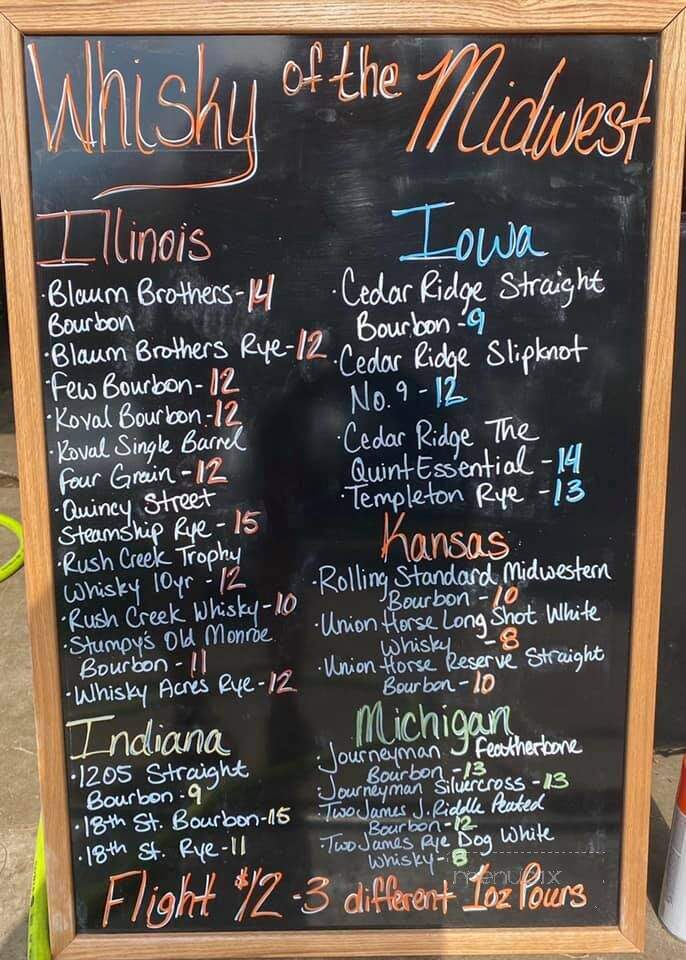 Whisky of the Midwest
Illinois
·Blaum Brothers-14
Bourbon
·Blaum Brothers Rye-12
·Few Bourbon-12
·Koval Bourbon-12
·Koval Single Barrel
Four Grain-12
·Quincy Street
Steamship Rye-15
·Rush Creek Trophy
Whisky 10yr-12
·Rush Creek Whisky-10
·Stumpy's Old Monroe
Bourbon-11
·Whisky Acres Rye-12
Indiana
·1205 Straight
Bourbon-9
·18th St. Bourbon-15
·18th St. Rye-11
Iowa
·Cedar Ridge Straight
Bourbon-9
·Cedar Ridge Slipknot
No. 9-12
·Cedar Ridge The
QuintEssential-14
·Templeton Rye-13
Kansas
·Rolling Standard Midwestern
Bourbon-10
·Union Horse Long Shot White
Whisky-8
·Union Horse Reserve Straight
Bourbon-10
Michigan
·Journeyman Featherbone
Bourbon-13
·Journeyman Silvercross-13
·Two James J. Riddle Peated
Bourbon-12
·Two James Rye Dog White
Whisky-8
menupix
Flight $12-3 different 1oz Pours